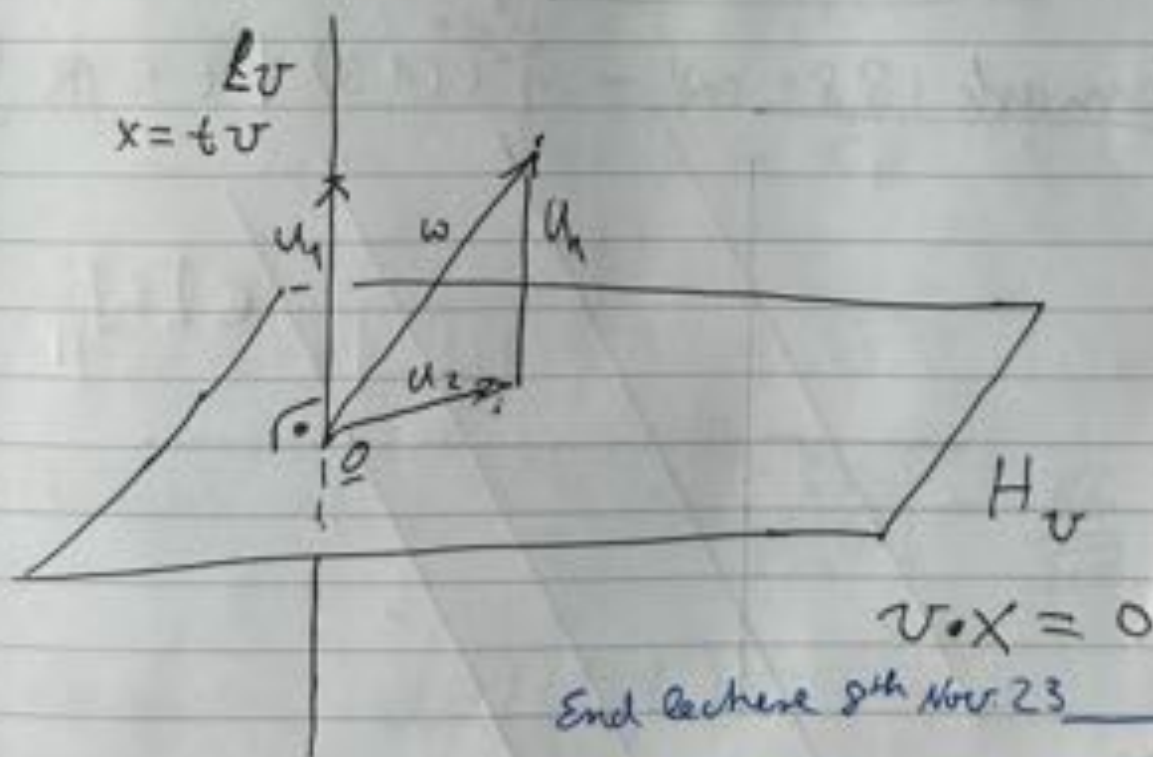 ℓv
x = tv
u₁
w
u₁
u₂
0
H_v
v·x = 0
End lecture 8th Nov. 23